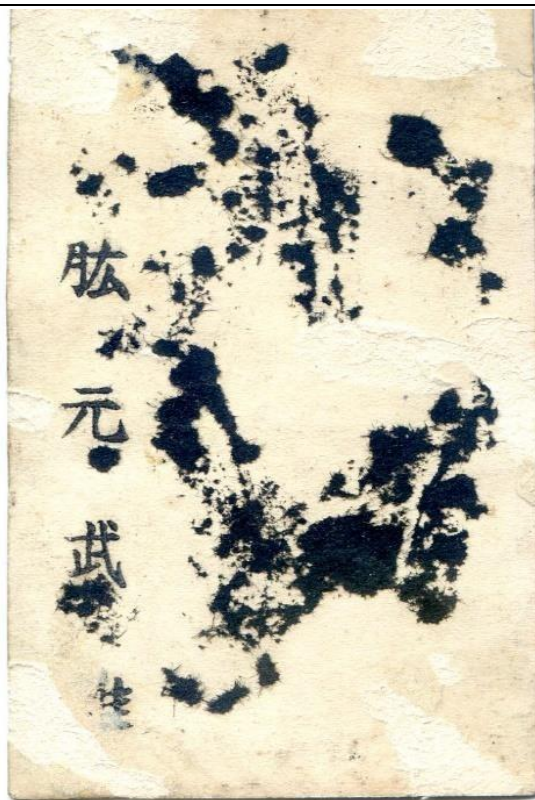 肱元武